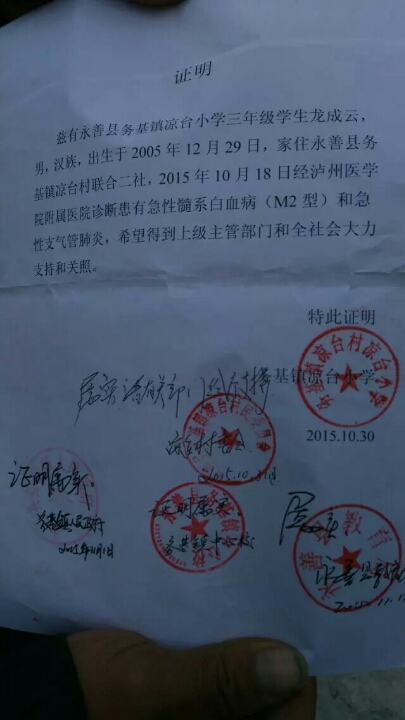 证明
兹有永善县务基镇凉台小学三年级学生龙成云，
男，汉族，出生于 2005 年 12 月 29 日，家住永善县务
基镇凉台村联合二社，2015 年 10 月 18 日经泸州医学
院附属医院诊断患有急性髓系白血病（M2 型）和急
性支气管肺炎，希望得到上级主管部门和全社会大力
支持和关照。
特此证明
基镇凉台小学
2015.10.30
属实请有关部门给予支持
2015.10.31
证明属实
务基镇人民政府
证明属实
务基镇中心校
属实
永善县教育